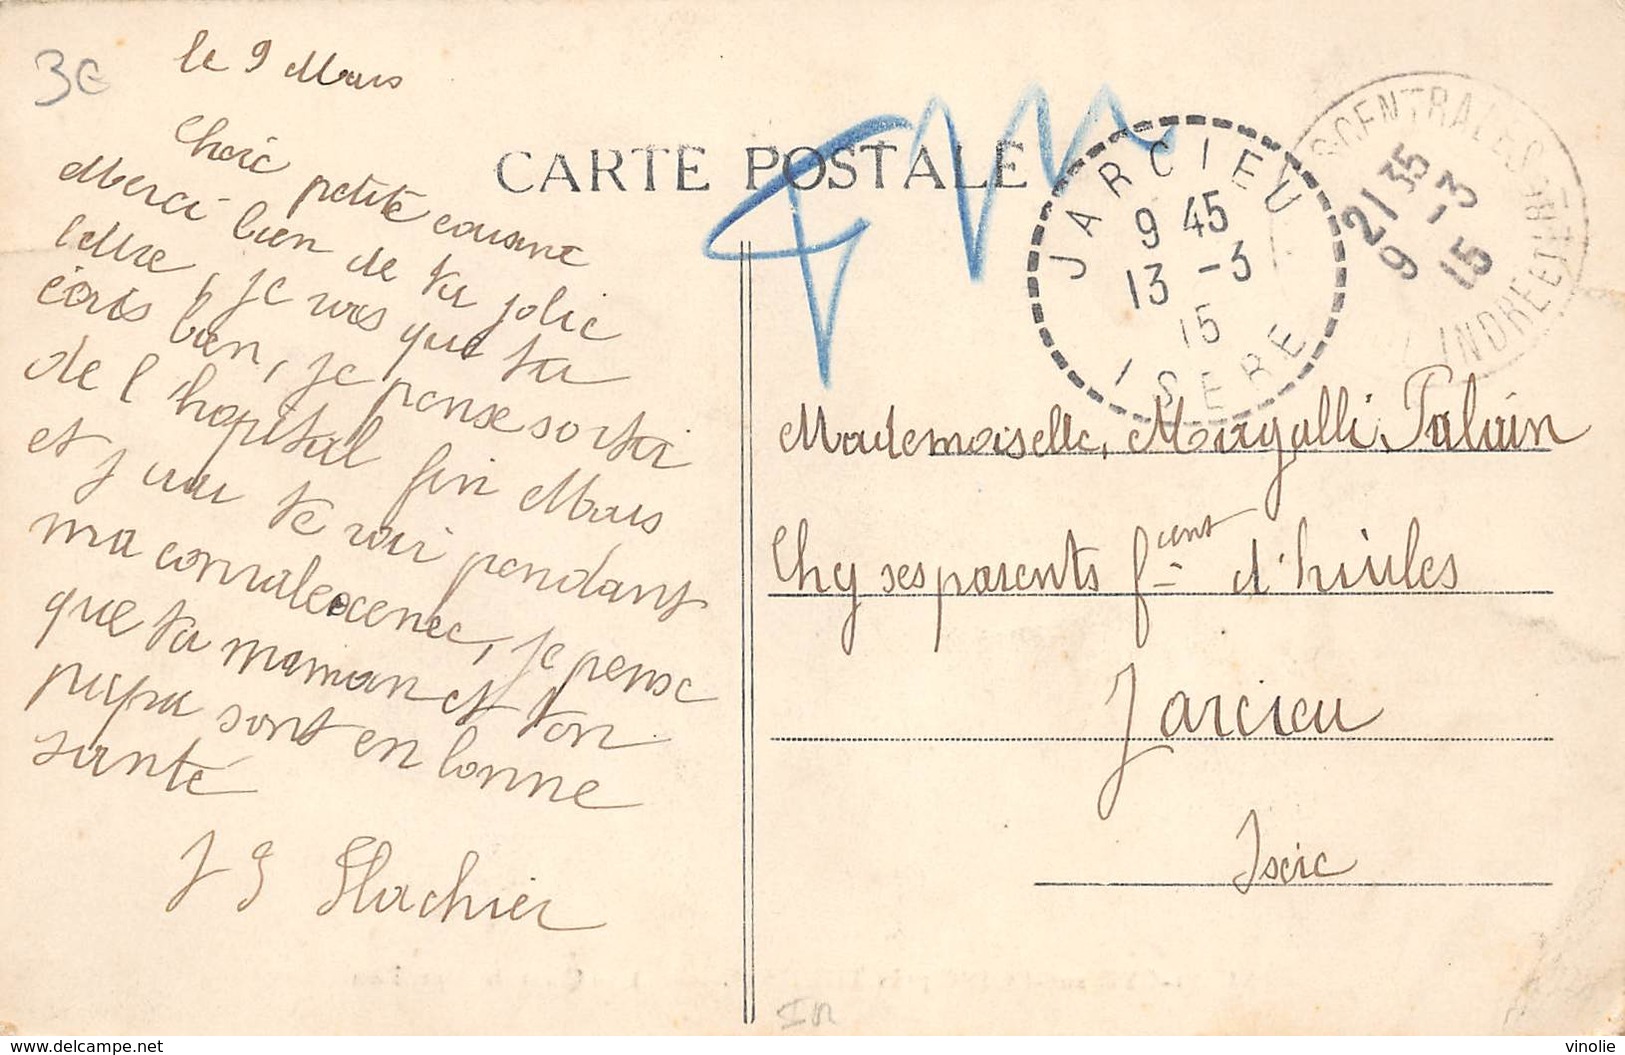 3€
le 9 Mars
Chere petite cousine
Merci bien de ta jolie
lettre, je vois que ta
écris bien, je pense sortir
de l'hopital fin Mars
et j'irai te voir pendant
ma convalescence, je pense
que ta maman et ton
papa sont en bonne
santé
J G Flachier
CARTE POSTALE
JARCIEU
9 45
13 -3
15
ISERE
21 35
9 -3
15
INDRE ET
Mademoiselle, Magalli
Chy ses parents fcant d'huiles
Jarcieu
Isere
delcampe.net
vinolie